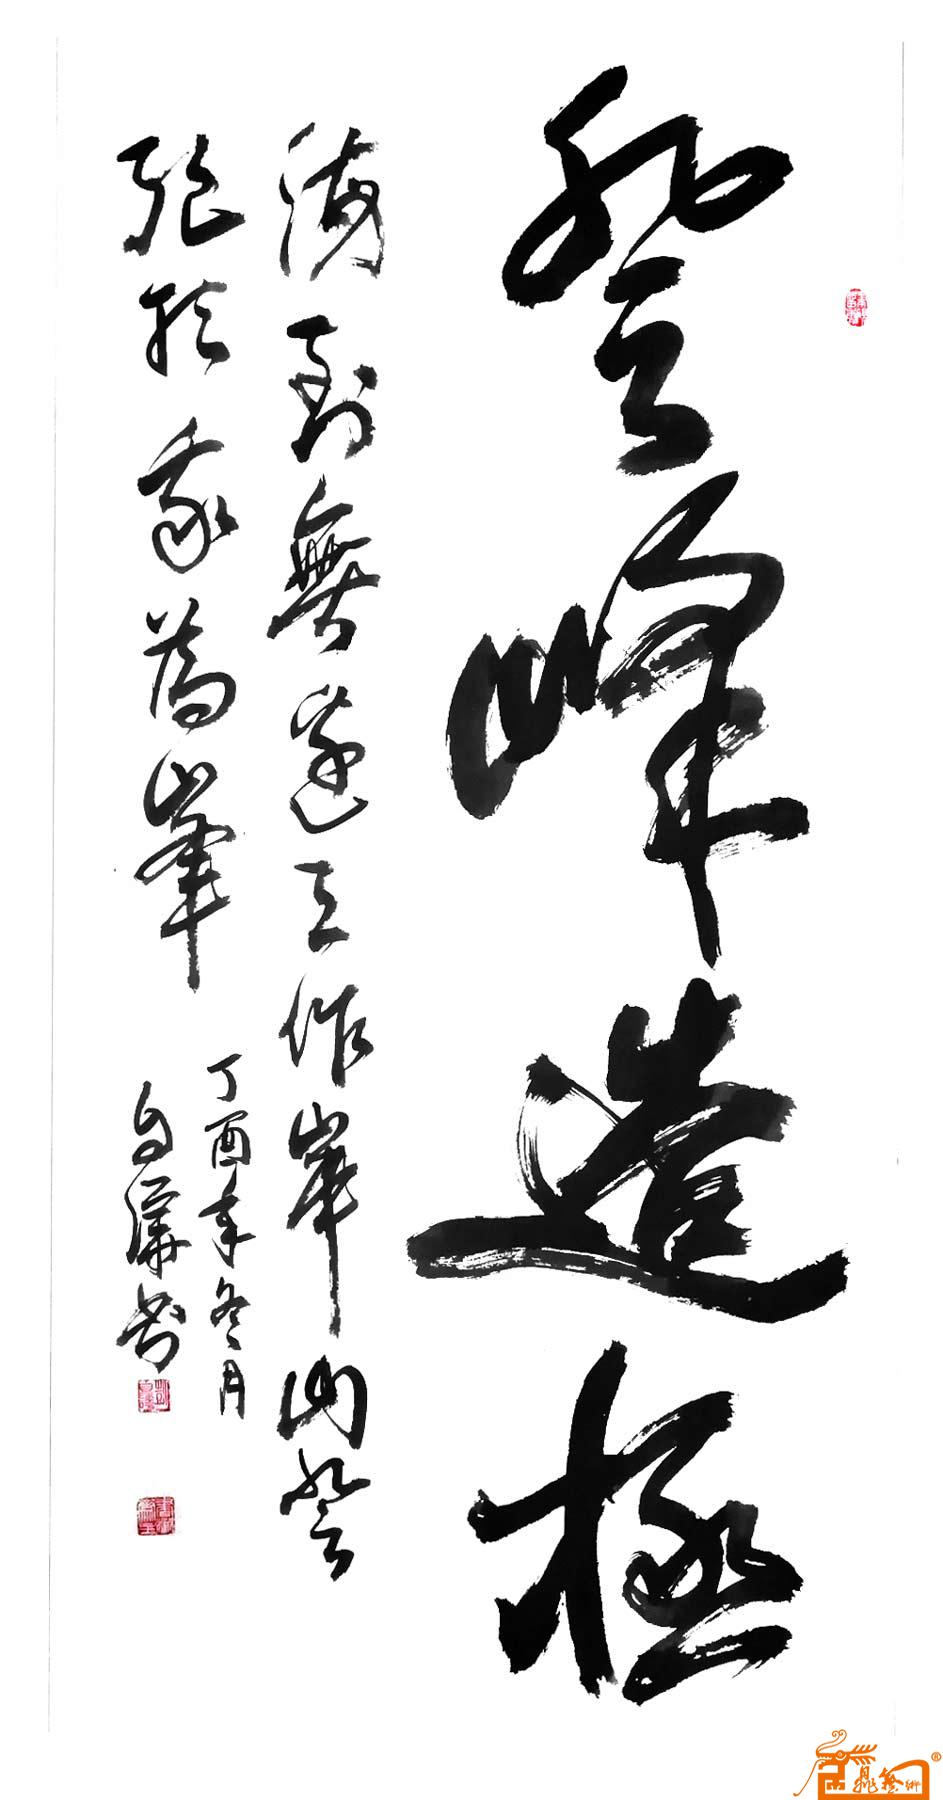 登峰造極
海到無邊天作岸山登
絕頂我為峯
丁酉年冬月
书